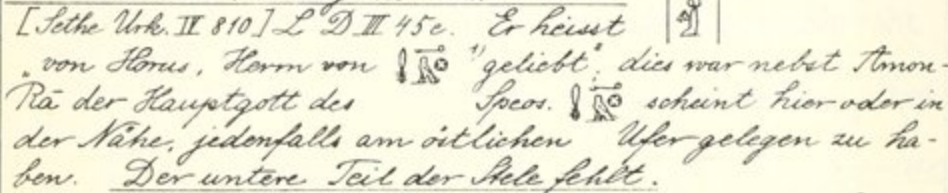 [Sethe Urk. IV 810] L D III 45e. Er heisst
„von Horus, Herrn von ¹⁾ geliebt“, dies war nebst Amon-
Rā der Hauptgott des Speos. scheint hier oder in
der Nähe, jedenfalls am östlichen Ufer gelegen zu ha-
ben. Der untere Teil der Stele fehlt.